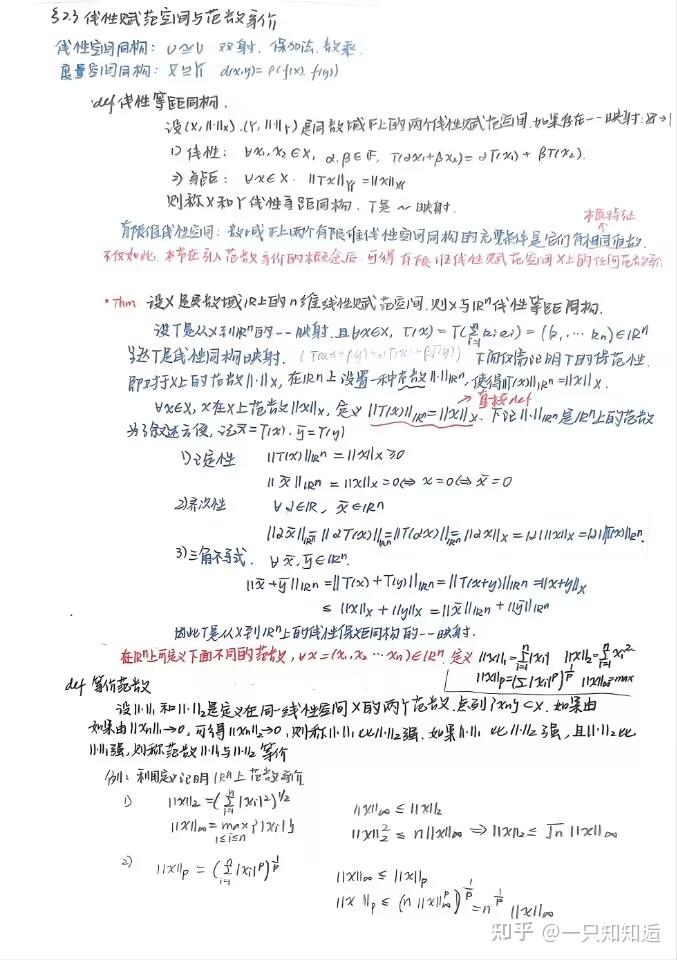 §2.3 线性赋范空间与范数等价
线性空间同构: U≅V 双射. 保加法. 数乘.
度量空间同构: X≅Y d(x,y)=ρ(f(x), f(y))
def 线性等距同构.
设(X, ||·||x), (Y, ||·||Y)是同数域F上的两个线性赋范空间. 如果存在一一映射:
1) 线性: ∀x₁, x₂∈X, α, β∈F, T(αx₁+βx₂) = αT(x₁) + βT(x₂).
2) 等距: ∀x∈X. ||Tx||Y = ||x||X
则称X和Y线性等距同构. T是~映射.
本征特征
有限维线性空间: 数域F上两个有限维线性空间同构的充要条件是它们有相同维数.
不仅如此. 本节在引入范数等价的概念后. 可得有限维线性赋范空间X上的任何范数等价
•Thm 设X是实数域ℝ上的n维线性赋范空间. 则X与ℝⁿ线性等距同构.
设T是从X到ℝⁿ的一一映射. 且∀x∈X, T(x) = T(∑ᵢ₌₁ⁿ kᵢeᵢ) = (k₁, … kₙ)∈ℝⁿ
T是线性同构映射. (T(αx+βy)=αT(x)+βT(y)) 下面仅需证明T的保范性.
即对于X上的范数||·||x, 在ℝⁿ上设置一种范数||·||ℝⁿ, 使得||T(x)||ℝⁿ = ||x||x.
→直接def
∀x∈X, x在X上范数||x||x, 定义||T(x)||ℝⁿ=||x||x. 下记||·||ℝⁿ是ℝⁿ上的范数
为了叙述方便, 记x̄=T(x). ȳ=T(y)
1) 正定性 ||T(x)||ℝⁿ = ||x||x ≥0
||x̄||ℝⁿ = ||x||x = 0 ⇔ x = 0 ⇔ x̄ = 0
2) 齐次性 ∀α∈ℝ, x̄∈ℝⁿ
||αx̄||ℝⁿ = ||αT(x)||ℝⁿ = ||T(αx)||ℝⁿ = ||αx||x = |α| ||x||x = |α| ||T(x)||ℝⁿ.
3) 三角不等式. ∀x̄, ȳ∈ℝⁿ.
||x̄+ȳ||ℝⁿ = ||T(x)+T(y)||ℝⁿ = ||T(x+y)||ℝⁿ = ||x+y||x
≤ ||x||x + ||y||x = ||x̄||ℝⁿ + ||ȳ||ℝⁿ
因此T是从X到ℝⁿ上的线性保距同构的一一映射.
在ℝⁿ上可定义下面不同的范数, ∀x = (x₁, x₂ … xₙ)∈ℝⁿ. 定义 ||x||₁=∑ᵢ₌₁ⁿ|xᵢ| ||x||₂=∑ᵢ₌₁ⁿ xᵢ²
||x||p=(∑|xᵢ|ᵖ)^(1/p) ||x||∞=max
def 等价范数
设||·||₁和||·||₂是定义在同一线性空间X的两个范数. 点列{xₙ}⊂X. 如果由
如果由||xₙ||₁→0, 可得||xₙ||₂→0, 则称||·||₁比||·||₂强. 如果||·||₁比||·||₂强, 且||·||₂比
||·||₁强, 则称范数||·||₁与||·||₂等价
例1: 利用定义证明ℝⁿ上范数等价
1) ||x||₂ = (∑ᵢ₌₁ⁿ |xᵢ|²)^(1/2) ||x||∞ ≤ ||x||₂
||x||∞ = max₁≤ᵢ≤ₙ {|xᵢ|} ||x||₂² ≤ n||x||∞ ⇒ ||x||₂ ≤ √n ||x||∞
2) ||x||p = (∑ᵢ₌₁ⁿ |xᵢ|ᵖ)^(1/p) ||x||∞ ≤ ||x||p
||x||p ≤ (n ||x||∞ᵖ)^(1/p) = n^(1/p) ||x||∞
知乎 @一只知知逅